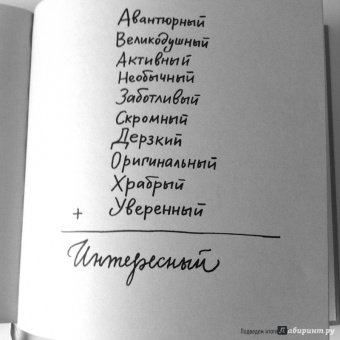 Авантюрный
Великодушный
Активный
Необычный
Заботливый
Скромный
Дерзкий
Оригинальный
Храбрый
+ Уверенный
Интересный
Подведем итоги
Лабиринт.ру